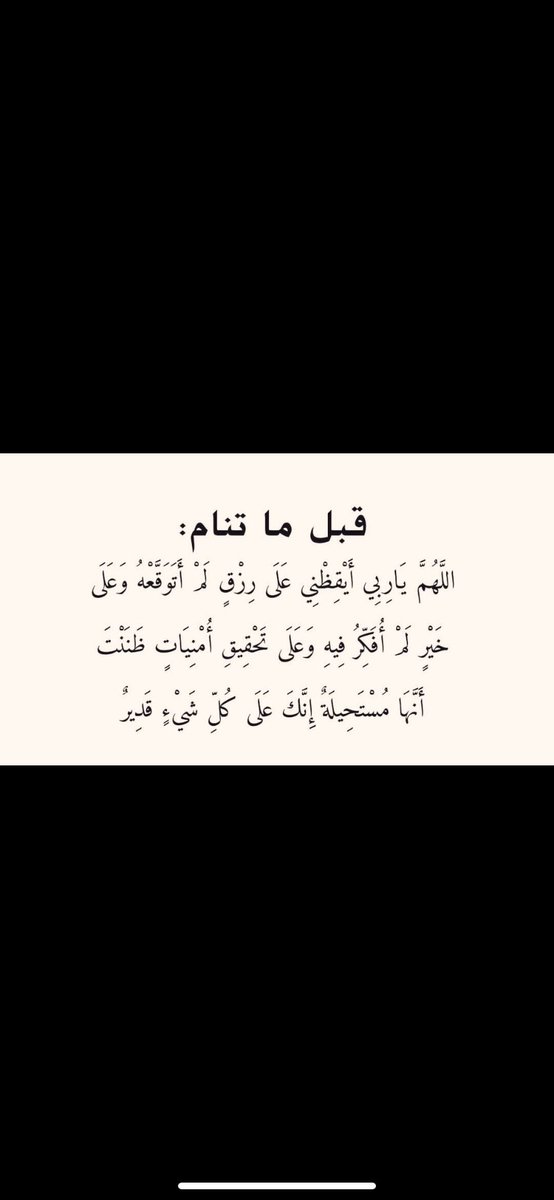 قبل ما تنام:
اللَّهُمَّ يَارِبِي أَيْقِظْنِي عَلَى رِزْقٍ لَمْ أَتَوَقَّعْهُ وَعَلَى
خَيْرٍ لَمْ أُفَكِّرُ فِيهِ وَعَلَى تَحْقِيقِ أُمْنِيَاتٍ ظَنَنْتَ
أَنَّهَا مُسْتَحِيلَةٌ إِنَّكَ عَلَى كُلِّ شَيْءٍ قَدِيرٌ